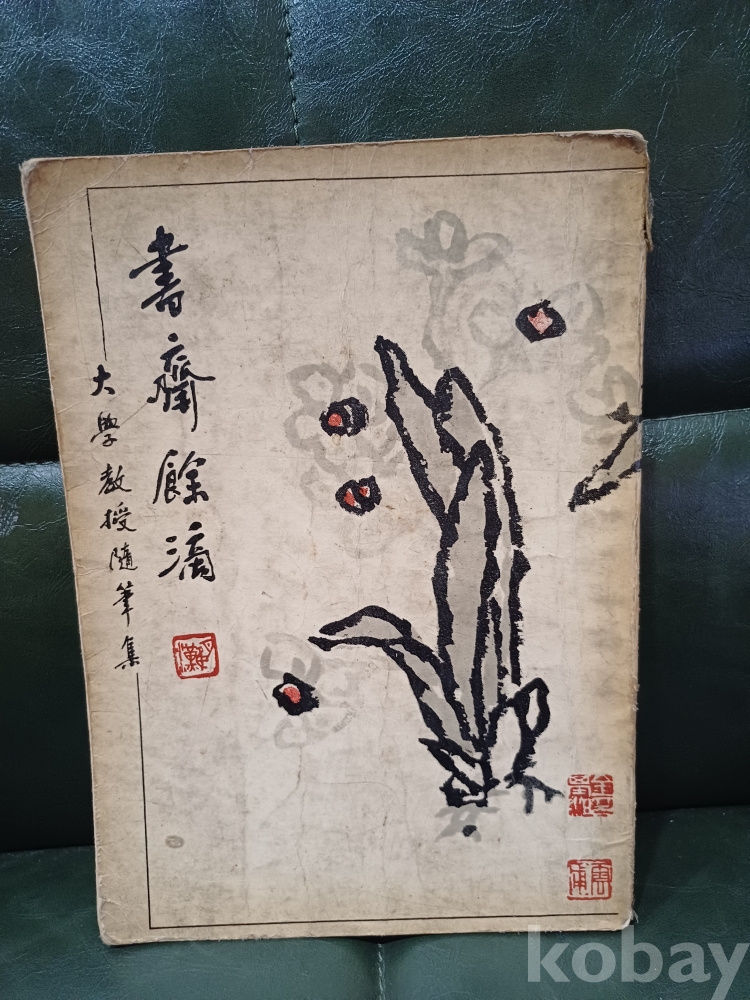 書齋餘滴
大學教授隨筆集
kobay